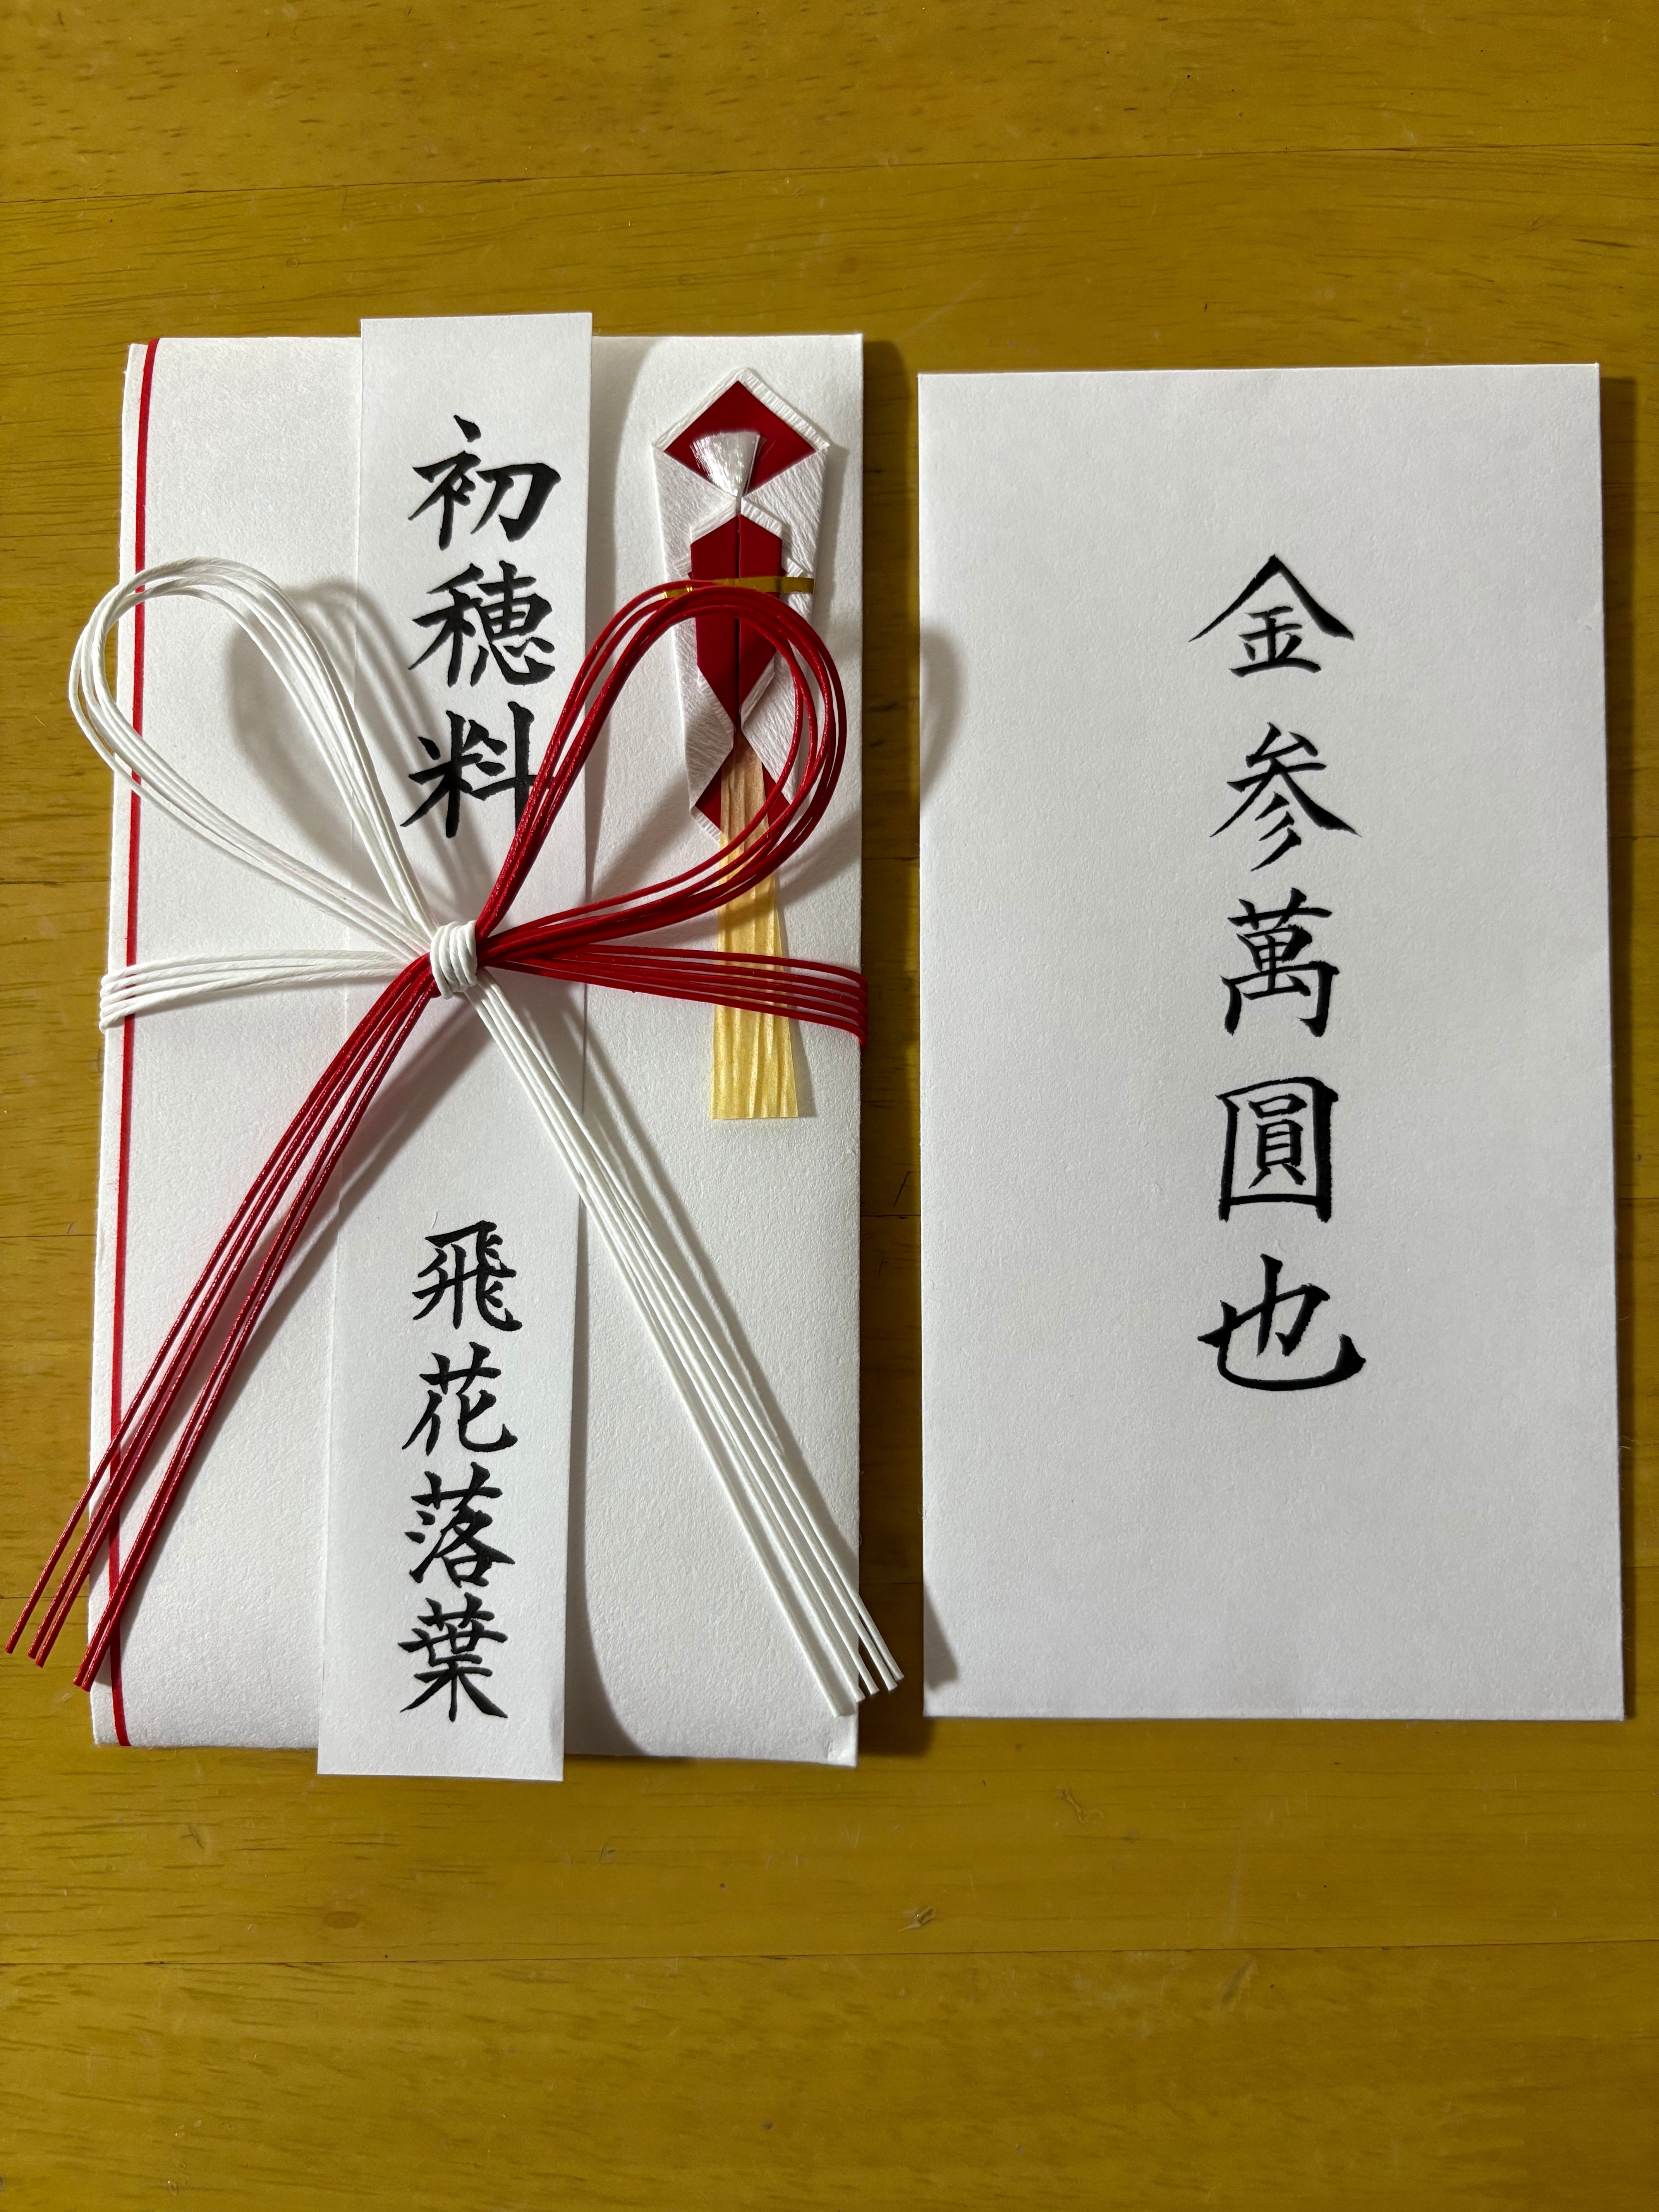 初穂料
飛花落葉
金参萬圓也